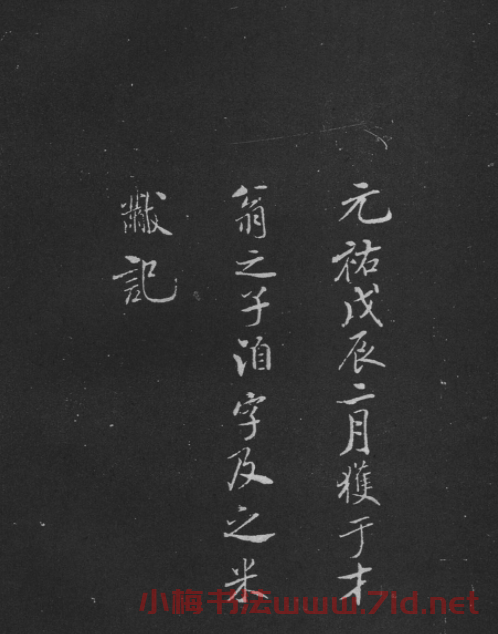 元祐戊辰二月獲于才
翁之子洎字及之米
黻記
小梅书法www.7ld.net